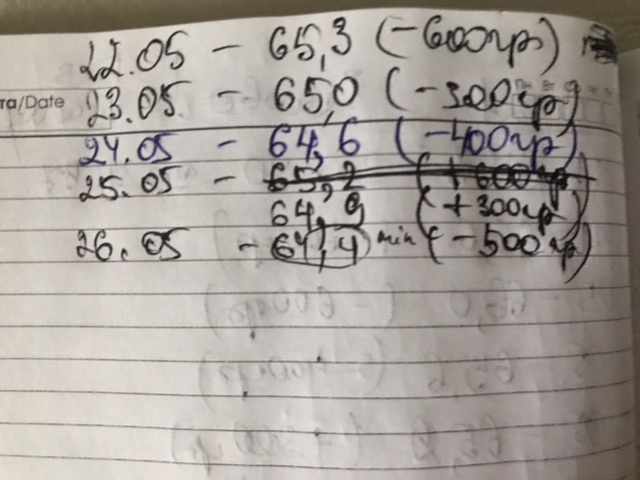 22.05 – 65,3 (–600гр)
ra/Date 23.05 – 65,0 (–300гр)
24.05 – 64,6 (–400гр)
25.05 – 65,2 (+600гр)
64,9 (+300гр)
26.05 – 64,4 min (–500гр)